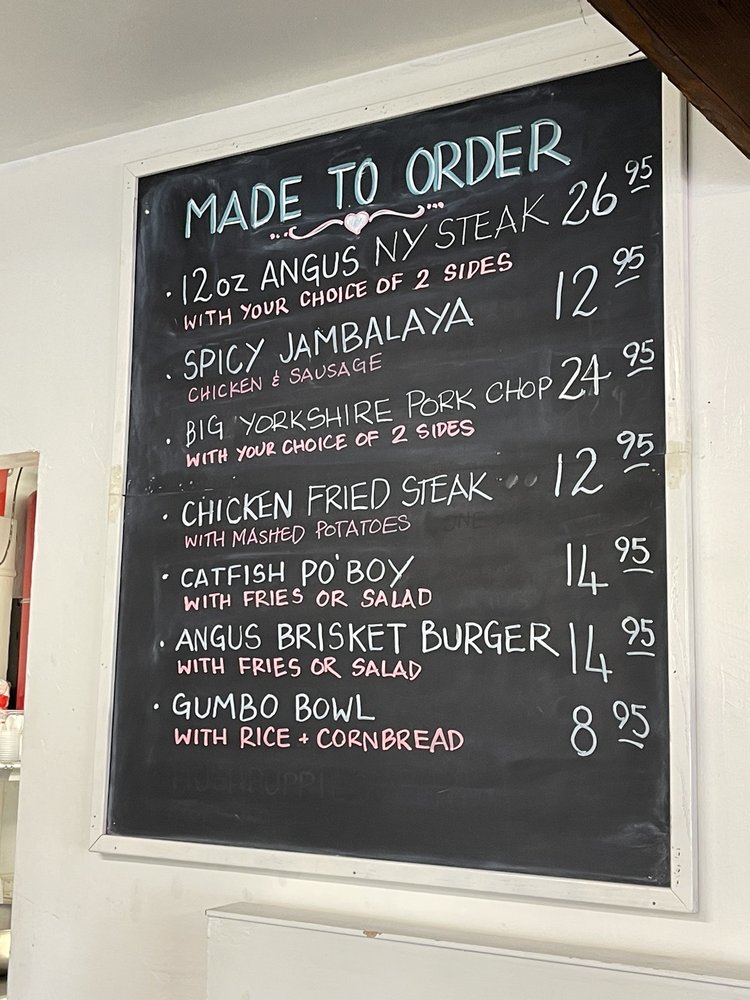 MADE TO ORDER
• 12oz ANGUS NY STEAK 26 95
WITH YOUR CHOICE OF 2 SIDES
• SPICY JAMBALAYA 12 95
CHICKEN & SAUSAGE
• BIG YORKSHIRE PORK CHOP 24 95
WITH YOUR CHOICE OF 2 SIDES
• CHICKEN FRIED STEAK 12 95
WITH MASHED POTATOES
• CATFISH PO'BOY 14 95
WITH FRIES OR SALAD
• ANGUS BRISKET BURGER 14 95
WITH FRIES OR SALAD
• GUMBO BOWL 8 95
WITH RICE + CORNBREAD